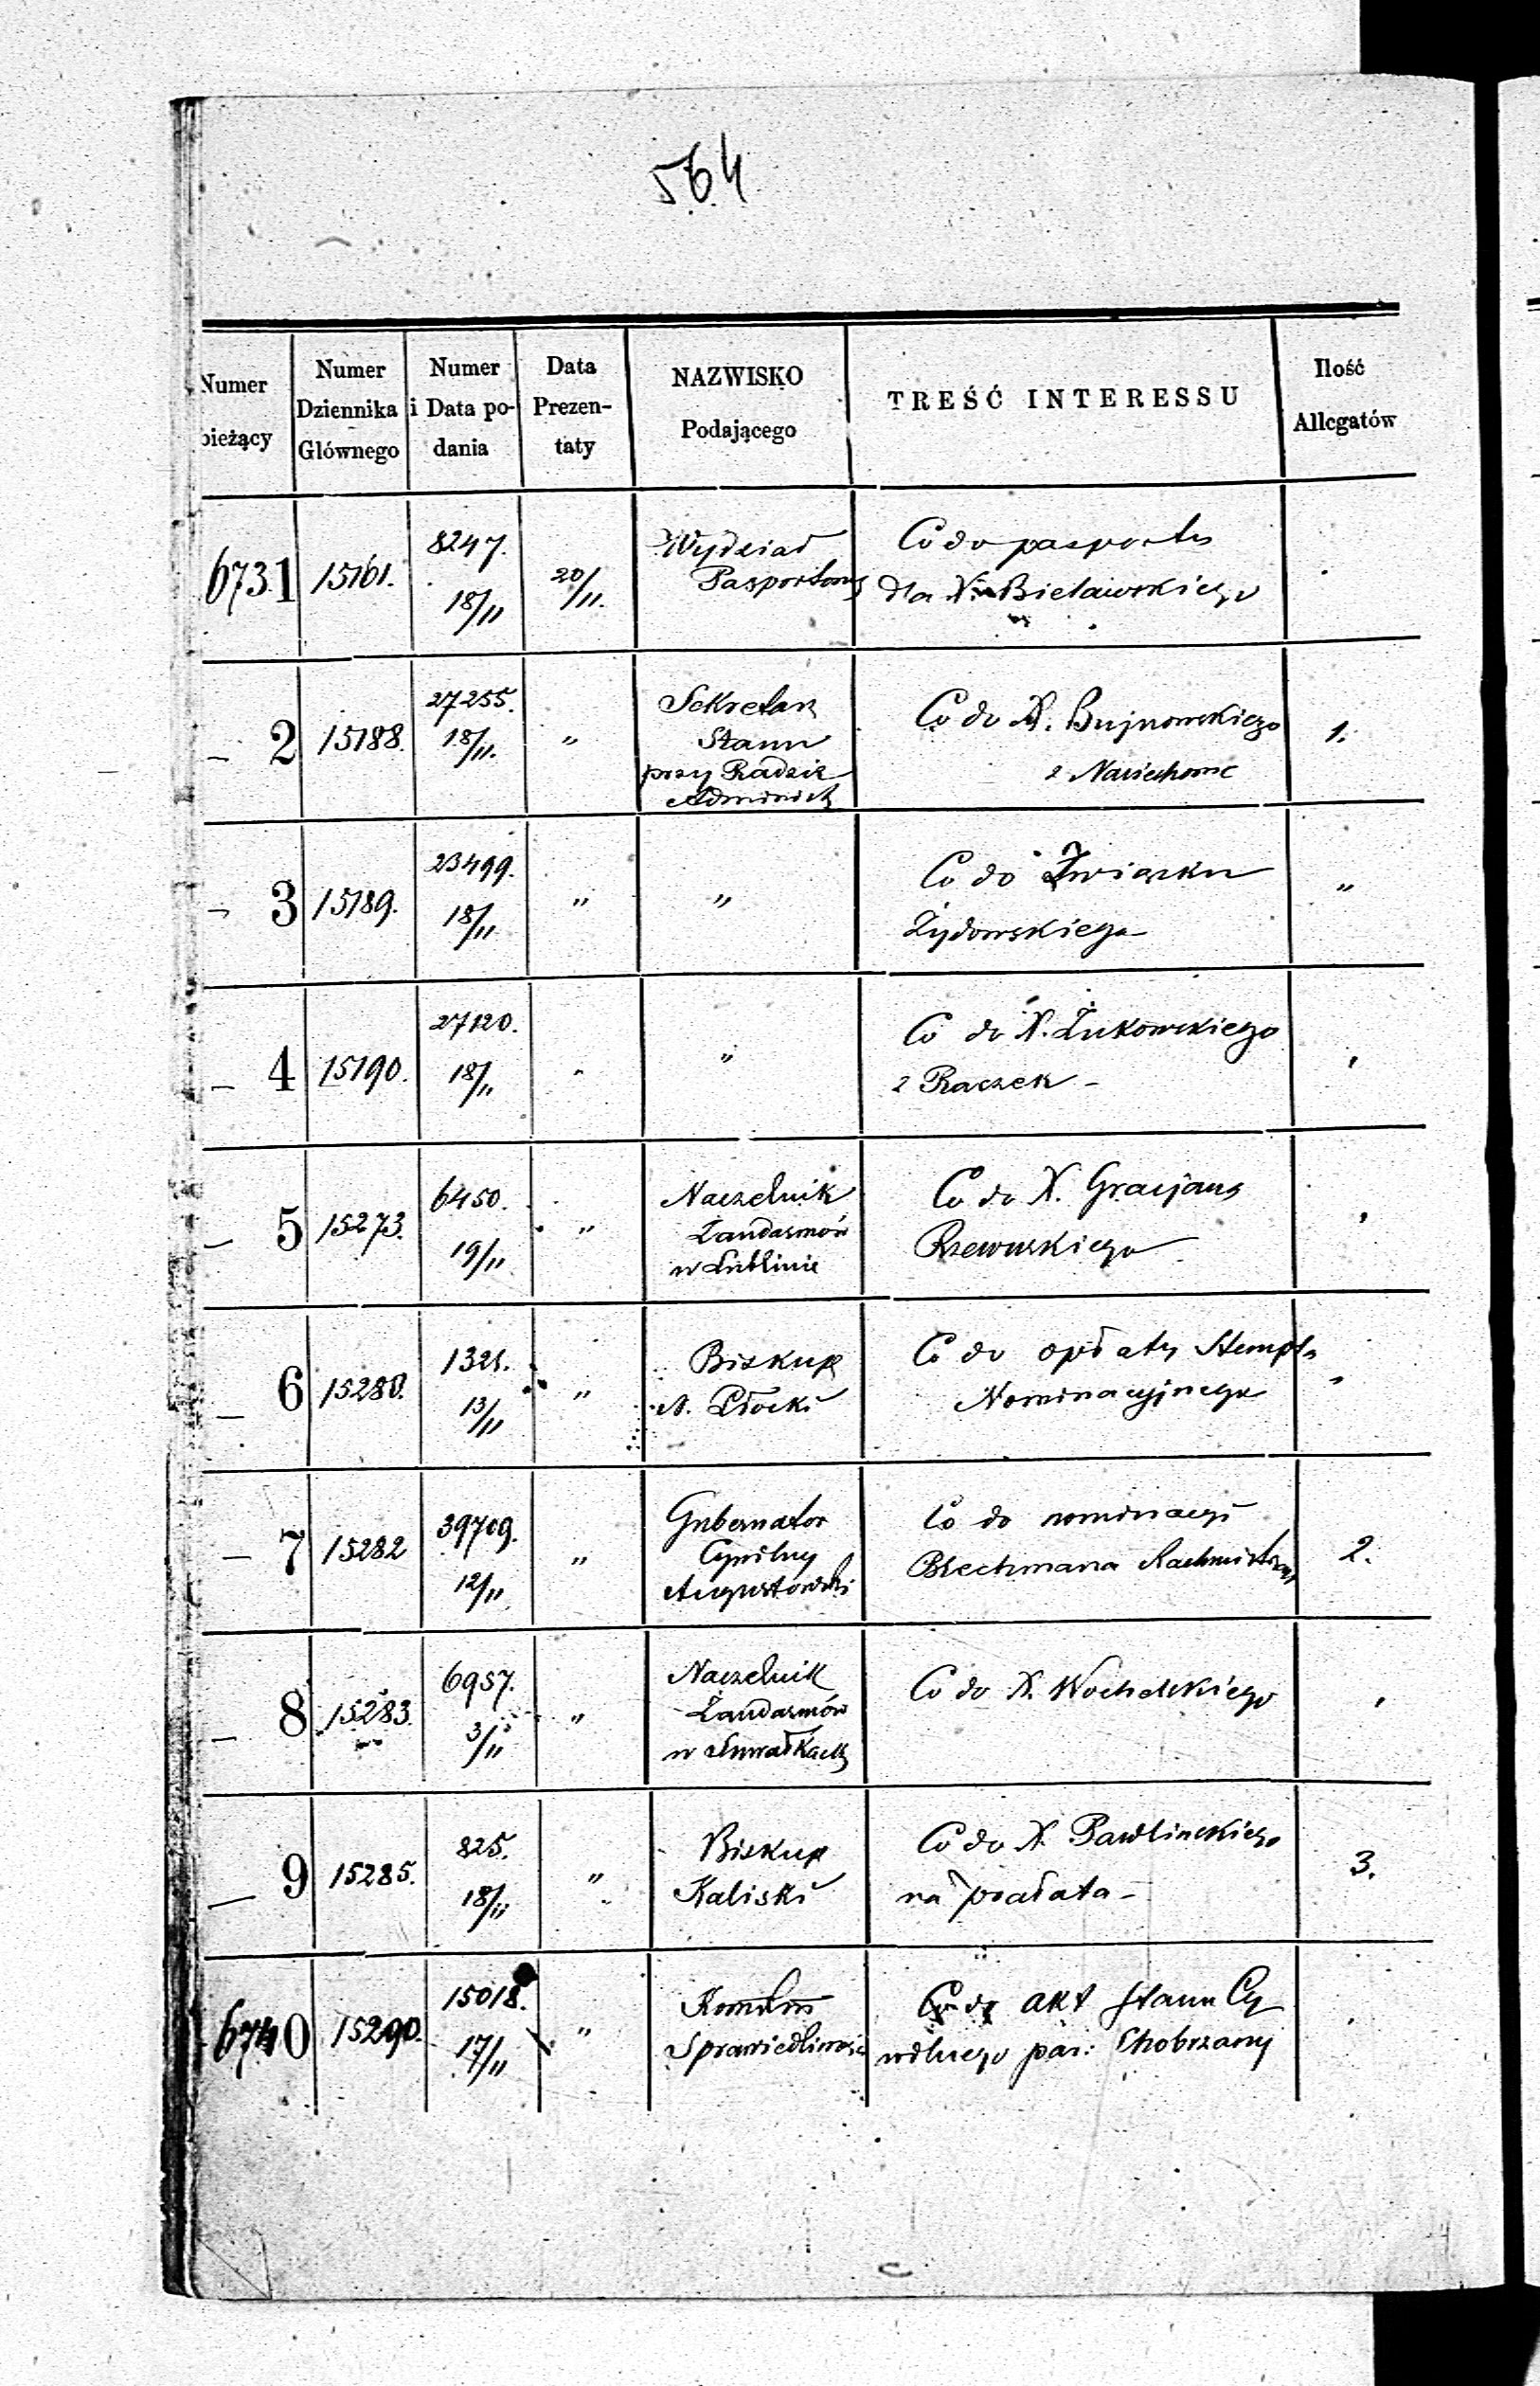 564
Numer bieżący | Numer Dziennika Głównego | Numer i Data podania | Data Prezentaty | NAZWISKO Podającego | TREŚĆ INTERESSU | Ilość Allegatów
6731 | 15161. | 8247. 18/11 | 20/11. | Wydział Pasportowy | Co do pasportu dla X. Bielawskiego
— 2 | 15188. | 27255. 18/11. | " | Sekretarz Stanu przy Radzie Administ | Co do X. Bujnowskiego z | 1.
— 3 | 15189. | 23499. 18/11 | " | " | Co do Związku Żydowskiego — | "
— 4 | 15190. | 27120. 18/11 | " | " | Co do X. Żukowskiego z Raczek — | "
— 5 | 15273. | 6450. 19/11 | " | Naczelnik Żandarmów w Lublinie | Co do X. Gracjana Rzewuskiego | "
— 6 | 15280. | 1321. 13/11 | " | Biskup N. Płocki | Co do opłaty Stempla Nominacyjnego | "
— 7 | 15282 | 39709. 12/11 | " | Gubernator Cywilny Augustowski | Co do nominacyi Rachmistrza | 2.
— 8 | 15283. | 6957. 3/11 | " | Naczelnik Żandarmów w Suwałkach | Co do X. | "
— 9 | 15285. | 825. 18/11 | " | Biskup Kaliski | Co do X. Pawlinskiego na prałata — | 3.
6740 | 15290. | 15018. 17/11 | " | Sprawiedliwości | Co do akt Stanu Cywilnego par: